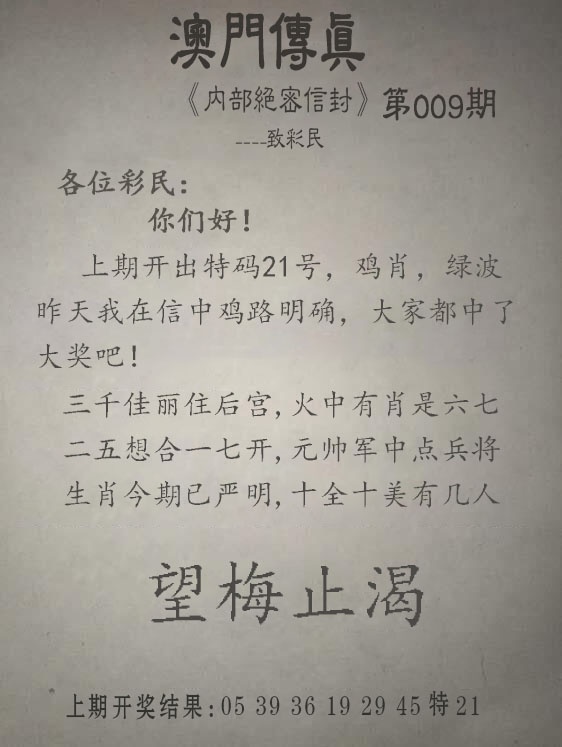 澳門傳眞
《内部絕密信封》第009期
----致彩民
各位彩民：
你们好！
上期开出特码21号，鸡肖，绿波
昨天我在信中鸡路明确，大家都中了
大奖吧！
三千佳丽住后宫,火中有肖是六七
二五想合一七开,元帅军中点兵将
生肖今期已严明,十全十美有几人
望梅止渴
上期开奖结果:05 39 36 19 29 45 特 21